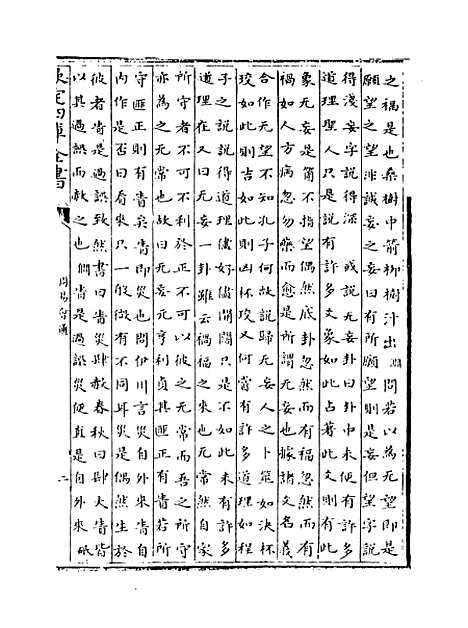 之禍是也桑樹中箭柳樹汁出淵問若以為无望即是
願望之望非誠妄之妄曰有所願望則是妄但望字說
得淺妄字說得深 或說无妄卦曰卦中未便有許多
道理聖人只是說有許多爻象如此占著此爻則有此
象无妄是箇不指望偶然底卦忽然而有福忽然而有
禍如人方病忽勿藥而愈是所謂无妄也據諸爻名義
合作无望不知孔子何故說歸无妄人之卜筮如決杯
珓如此則吉如此則凶杯珓又何嘗有許多道理如程
子之說說得道理儘好儘開闊只是不如此未有許多
道理在又曰无妄一卦雖云禍福之來也无常然自家
所守者不可不利於正不可以彼之无常而吾之所守
亦為之无常也故曰无妄元亨利貞其匪正有眚若所
守匪正則有眚矣眚即災也問伊川言災自外來眚自
内作是否曰看來只一般微有不同耳災是偶然生於
彼者眚是過誤致然書曰眚災肆赦春秋曰肆大眚皆
以其過誤而赦之也僴眚是過誤災便直是自外來砥
欽定四庫全書
周易會通
二